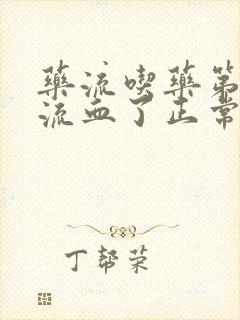 药流喫药第
流血了正常
丁帮荣